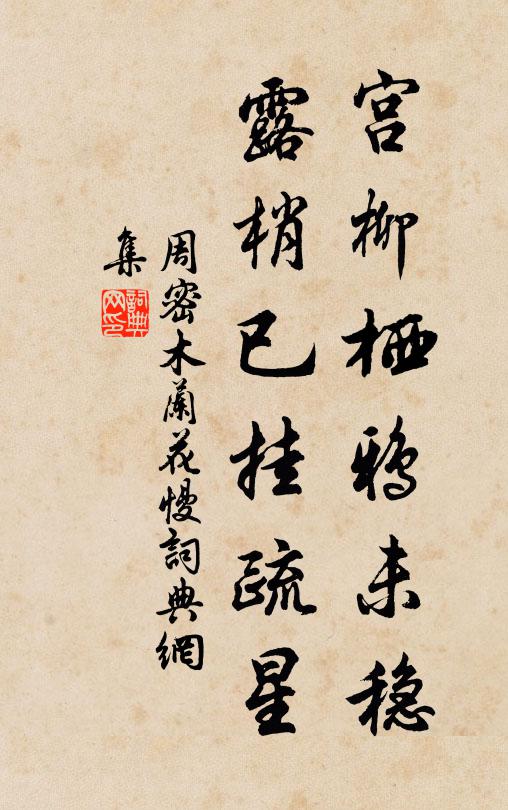 宫柳栖鸦未稳
露梢已挂疏星
周密木蘭花慢詞典網
集
詞典网印